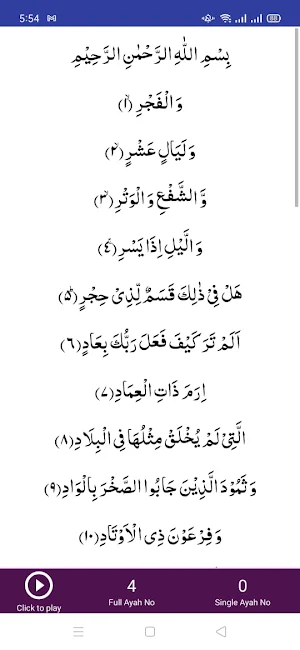 5:54
بِسْمِ اللّٰهِ الرَّحْمٰنِ الرَّحِيْمِ
وَ الْفَجْرِۙ(۱)
وَ لَیَالٍ عَشْرٍۙ(۲)
وَّ الشَّفْعِ وَ الْوَتْرِۙ(۳)
وَ الَّیْلِ اِذَا یَسْرِۚ(۴)
هَلْ فِیْ ذٰلِكَ قَسَمٌ لِّذِیْ حِجْرٍؕ(۵)
اَلَمْ تَرَ كَیْفَ فَعَلَ رَبُّكَ بِعَادٍ(۶)
اِرَمَ ذَاتِ الْعِمَادِ(۷)
الَّتِیْ لَمْ یُخْلَقْ مِثْلُهَا فِی الْبِلَادِ(۸)
وَ ثَمُوْدَ الَّذِیْنَ جَابُوا الصَّخْرَ بِالْوَادِ(۹)
وَ فِرْعَوْنَ ذِی الْاَوْتَادِ(۱۰)
4 0
Click to play Full Ayah No Single Ayah No